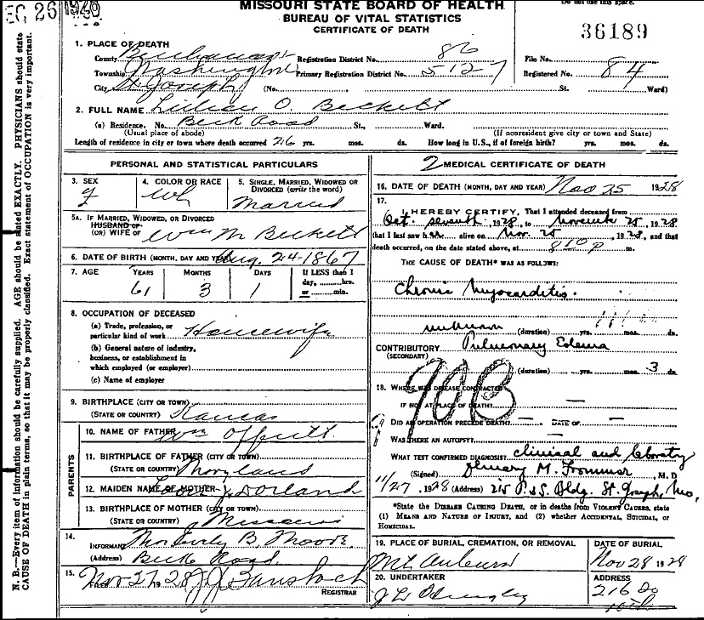 DEC 26 1940
MISSOURI STATE BOARD OF HEALTH
BUREAU OF VITAL STATISTICS
CERTIFICATE OF DEATH
Do not use this space.
36189
1. PLACE OF DEATH
County Buchanan Registration District No. 86 File No.
Township Washington Primary Registration District No. 5127 Registered No. 84
City St. Joseph (No. St. Ward)
2. FULL NAME Lillian O. Beckett
(a) Residence. No. Beck Road St., Ward.
(Usual place of abode) (If nonresident give city or town and State)
Length of residence in city or town where death occurred 26 yrs. mos. ds. How long in U.S., if of foreign birth? yrs. mos. ds.
PERSONAL AND STATISTICAL PARTICULARS
3. SEX 4. COLOR OR RACE 5. SINGLE, MARRIED, WIDOWED OR
DIVORCED (write the word)
F wh Married
5A. IF MARRIED, WIDOWED, OR DIVORCED
HUSBAND OF
(OR) WIFE OF Wm M. Beckett
6. DATE OF BIRTH (MONTH, DAY AND YEAR) Aug. 24-1867
7. AGE YEARS MONTHS DAYS If LESS than 1
day, hrs.
or min.
61 3 1
8. OCCUPATION OF DECEASED
(a) Trade, profession, or
particular kind of work Housewife
(b) General nature of industry,
business, or establishment in
which employed (or employer)
(c) Name of employer
9. BIRTHPLACE (CITY OR TOWN)
(STATE OR COUNTRY) Kansas
PARENTS
10. NAME OF FATHER Wm Offutt
11. BIRTHPLACE OF FATHER (CITY OR TOWN)
(STATE OR COUNTRY) Maryland
12. MAIDEN NAME OF MOTHER Dorland
13. BIRTHPLACE OF MOTHER (CITY OR TOWN)
(STATE OR COUNTRY) Missouri
14.
INFORMANT Mrs B. Moore
(Address) Beck Road.
15. Nov 27 1928
REGISTRAR
2 MEDICAL CERTIFICATE OF DEATH
16. DATE OF DEATH (MONTH, DAY AND YEAR) Nov 25 1928
17.
I HEREBY CERTIFY, That I attended deceased from
Oct. seventh, 1928, to November 25, 1928
that I last saw her alive on Nov. 25, 1928, and that
death occurred, on the date stated above, at 810 P m.
THE CAUSE OF DEATH* WAS AS FOLLOWS:
Chronic Myocarditis.
unknown (duration) yrs. mos. ds.
CONTRIBUTORY Pulmonary Edema
(SECONDARY)
(duration) yrs. mos. 3 ds.
90B
18. WHERE WAS DISEASE CONTRACTED
IF NOT AT PLACE OF DEATH?
DID AN OPERATION PRECEDE DEATH? DATE OF
WAS THERE AN AUTOPSY?
WHAT TEST CONFIRMED DIAGNOSIS? clinical and laboratory
(Signed) M. , M. D
11/27, 1928 (Address) 215 P. & S. Bldg. St. Joseph, Mo.
*State the DISEASE CAUSING DEATH, or in deaths from VIOLENT CAUSES, state
(1) MEANS AND NATURE OF INJURY, and (2) whether ACCIDENTAL, SUICIDAL, or
HOMICIDAL.
19. PLACE OF BURIAL, CREMATION, OR REMOVAL DATE OF BURIAL
Mt. Auburn Nov 28 1928
20. UNDERTAKER ADDRESS
216 So
10th
N. B.—Every item of information should be carefully supplied. AGE should be stated EXACTLY. PHYSICIANS should state
CAUSE OF DEATH in plain terms, so that it may be properly classified. Exact statement of OCCUPATION is very important.